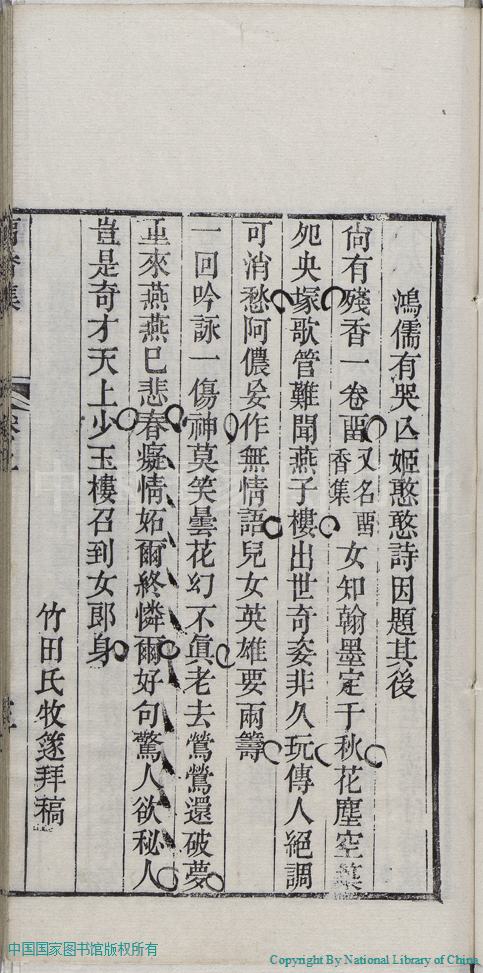 鴻儒有哭亾姬憨憨詩因題其後
尙有殘香一卷畱又名畱香集女知翰墨定千秋花塵空葉
夗央塜歌管難聞燕子樓出世奇姿非久玩傳人絕調
可消愁阿儂妾作無情語兒女英雄要兩籌
一回吟詠一傷神莫笑曇花幻不眞老去鶯鶯還破夢
重來燕燕已悲春癡情妬爾終憐爾好句驚人欲秘人
豈是奇才天上少玉樓召到女郎身
竹田氏牧篴拜稿
香集
中国国家图书馆版权所有
Copyright By National Library of China